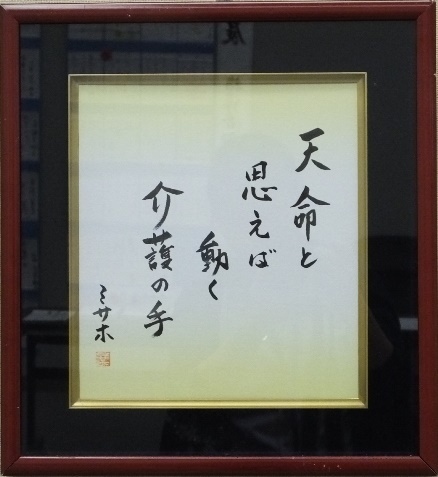 天命と
思えば
動く
介護の手
ミサホ